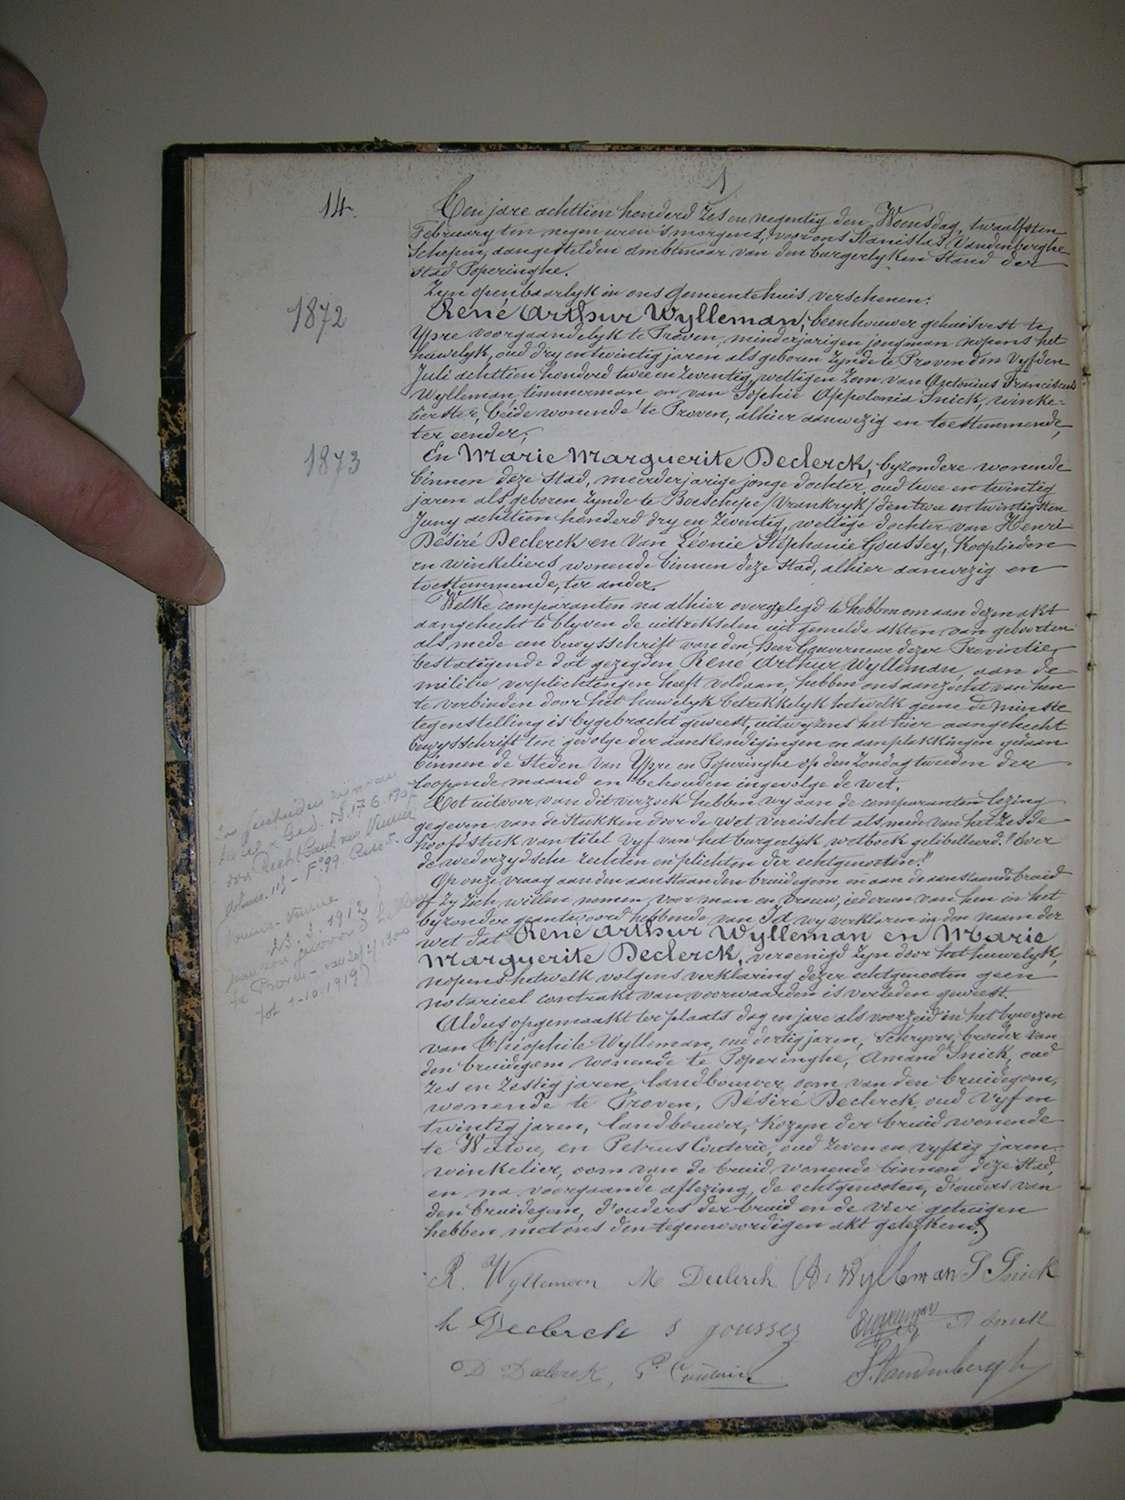 1
14.
Ten jare achttien honderd zes en negentig den Woensdag, twaalfsten
February ten negen uren 's morgens, voor ons Stanislas Vandenberghe
Schepen, aangestelden ambtenaar van den burgerlyken Stand der
stad Poperinghe.
Zyn openbaarlyk in ons Gemeentehuis verschenen:
1872
René Arthur Wylleman, beenhouwer gehuisvest te
Ypre voorgaandelyk te Proven, minderjarigen jongman nopens het
huwelyk, oud dry en twintig jaren als geboren zynde te Proven den vyfden
Juli achttien honderd twee en zeventig, wettigen zoon van Antonius Franciscus
Wylleman, timmerman en van Sophie Appolonia Snick, winke-
lierster, beide wonende te Proven, alhier aanwezig en toestemmende,
ter eender;
1873
En Marie Marguerite Declerck, byzondere wonende
binnen deze stad, meerderjarige jonge dochter, oud twee en twintig
jaren als geboren zynde te Boeschepe (Vrankryk) den twee en twintigsten
Juny achttien honderd dry en zeventig, wettige dochter van Henri
Désiré Declerck en van Léonie Stéphanie Goussey, Kooplieden
en winkeliers, wonende binnen deze stad, alhier aanwezig en
toestemmende, ter ander.
Welke comparanten na alhier overgelegd te hebben om aan dezen akt
aangehecht te blyven de uittrekselen uit gemelde akten van geboorten
als mede een bewysschrift van den Heer Gouverneur dezer Provintie,
bestatigende dat gezegden René Arthur Wylleman, aan de
militie verplichtingen heeft voldaan, hebben ons aanzocht van hen
te verbinden door het huwelyk betrekkelyk hetwelk geene de minste
tegenstelling is bygebracht geweest, uitwyzens het hier aangehecht
bewysschrift ten gevolge der aankondigingen en aanplakkingen gedaan
binnen de steden van Ypre en Poperinghe op den zondag tweeden der
loopende maand en behouden ingevolge de wet.
Tot uitvoer van dit verzoek hebben wy aan de comparanten lezing
gegeven van de stukken door de wet vereischt als mede van het zesde
hoofdstuk van titel vyf van het burgerlyk wetboek getitelleerd: "Over
de wederzydsche rechten en plichten der echtgenooten."
Op onze vraag aan den aanstaanden bruidegom en aan de aanstaande bruid
of zy zich willen nemen voor man en vrouw, iedereen van hen in het
byzonder geantwoord hebbende van Ja, wy verklaren in den naam der
wet dat René Arthur Wylleman en Marie
Marguerite Declerck, vereenigd zyn door het huwelyk,
nopens hetwelk volgens verklaring dezer echtgenooten geen
notarieel contrakt van voorwaarden is verleden geweest.
Aldus opgemaakt ter plaats dag en jare als voorzeid in het bywezen
van Théophile Wylleman, oud dertig jaren, Schryver, broeder van
den bruidegom wonende te Poperinghe, Amand Snick, oud
zes en zestig jaren, landbouwer, oom van den bruidegom,
wonende te Proven, Désiré Declerck, oud vyf en
twintig jaren, landbouwer, kozyn der bruid wonende
te Watou, en Petrus Couterie, oud zeven en vyftig jaren
winkelier, oom van de bruid wonende binnen deze stad,
en na voorgaande aflezing, de echtgenooten, d'ouders van
den bruidegom, d'ouders der bruid en de vier getuigen
hebben met ons den tegenwoordigen akt geteekend.
17.6.190
Recht
F° 99
Veurne
23.3.1912
te Proven
tot 1-10-1919)
R. Wylleman M Declerck A. Wylleman S Snick
h Declerck S goussey A Snick
D Declerck, P. Couterie S. Vandenberghe